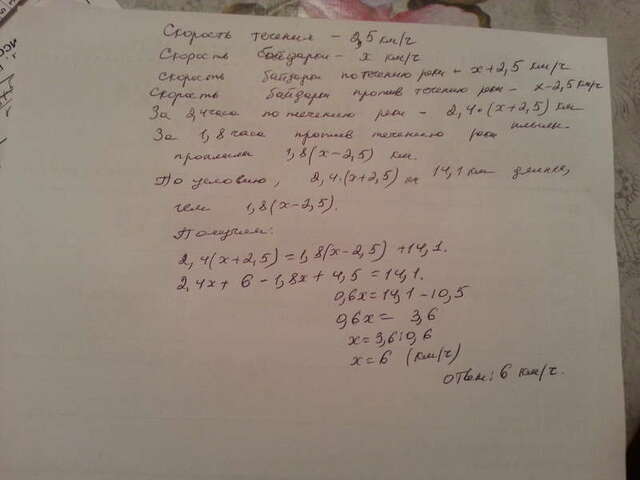 Скорость течения – 2,5 км/ч
Скорость байдарки – x км/ч
Скорость байдарки по течению реки – x+2,5 км/ч
Скорость байдарки против течению реки – x-2,5 км/ч
За 2,4 часа по течению реки – 2,4·(x+2,5) км
За 1,8 часа против течению реки
проплыли 1,8(x-2,5) км.
По условию, 2,4·(x+2,5) на 14,1 км длинее,
чем 1,8(x-2,5).
Получим:
2,4(x+2,5)=1,8(x-2,5)+14,1.
2,4x+6-1,8x+4,5=14,1.
0,6x=14,1-10,5
0,6x= 3,6
x=3,6:0,6
x=6 (км/ч)
Ответ: 6 км/ч.